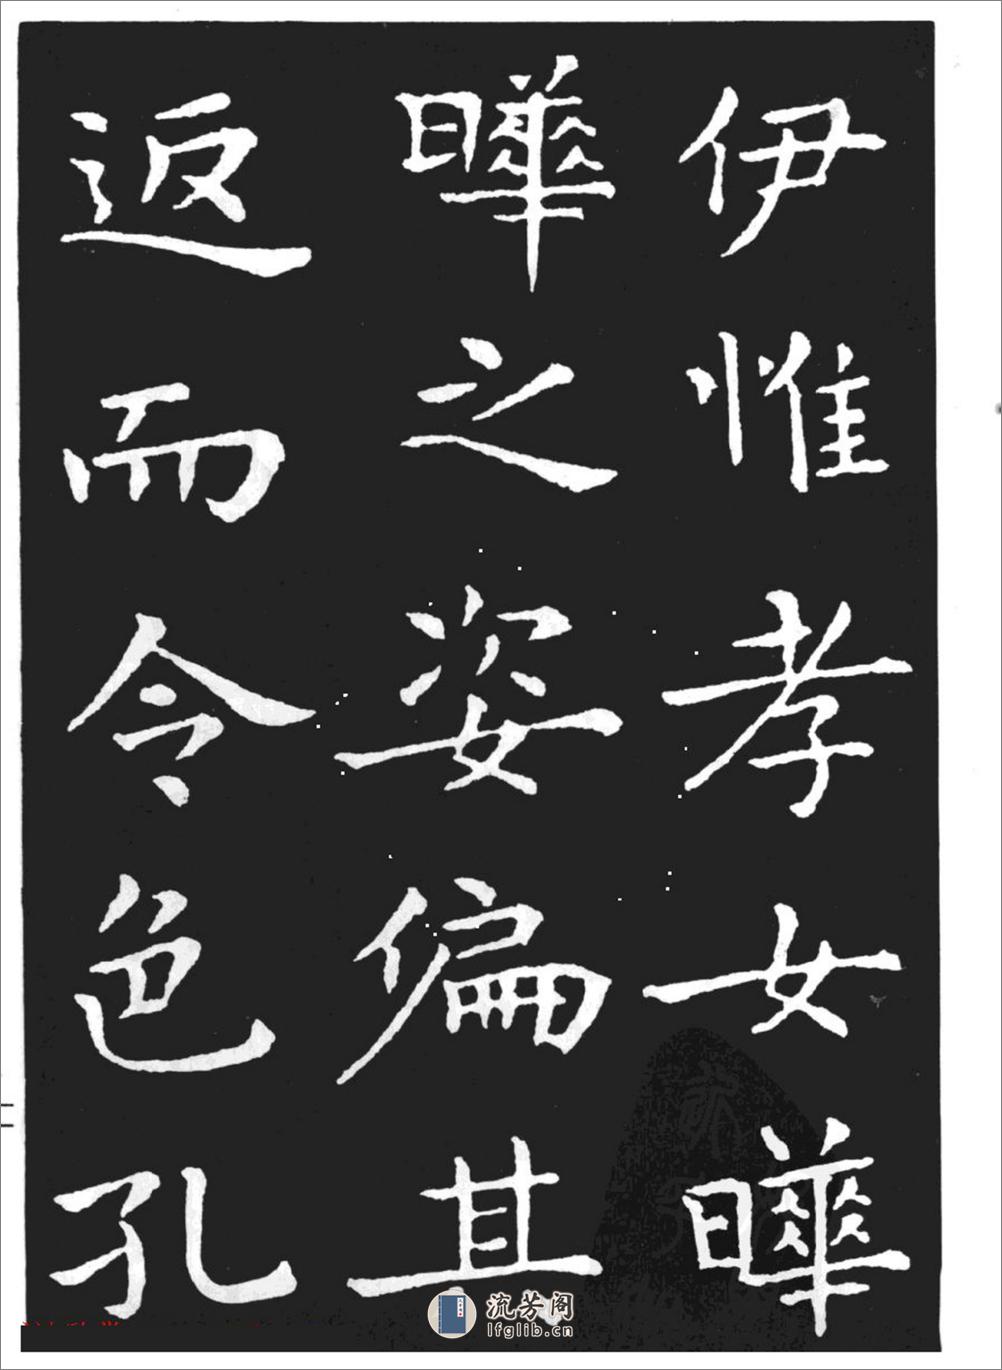 伊惟孝女曄
曄之姿偏其
返而令色孔
流芳阁
lfglib.cn